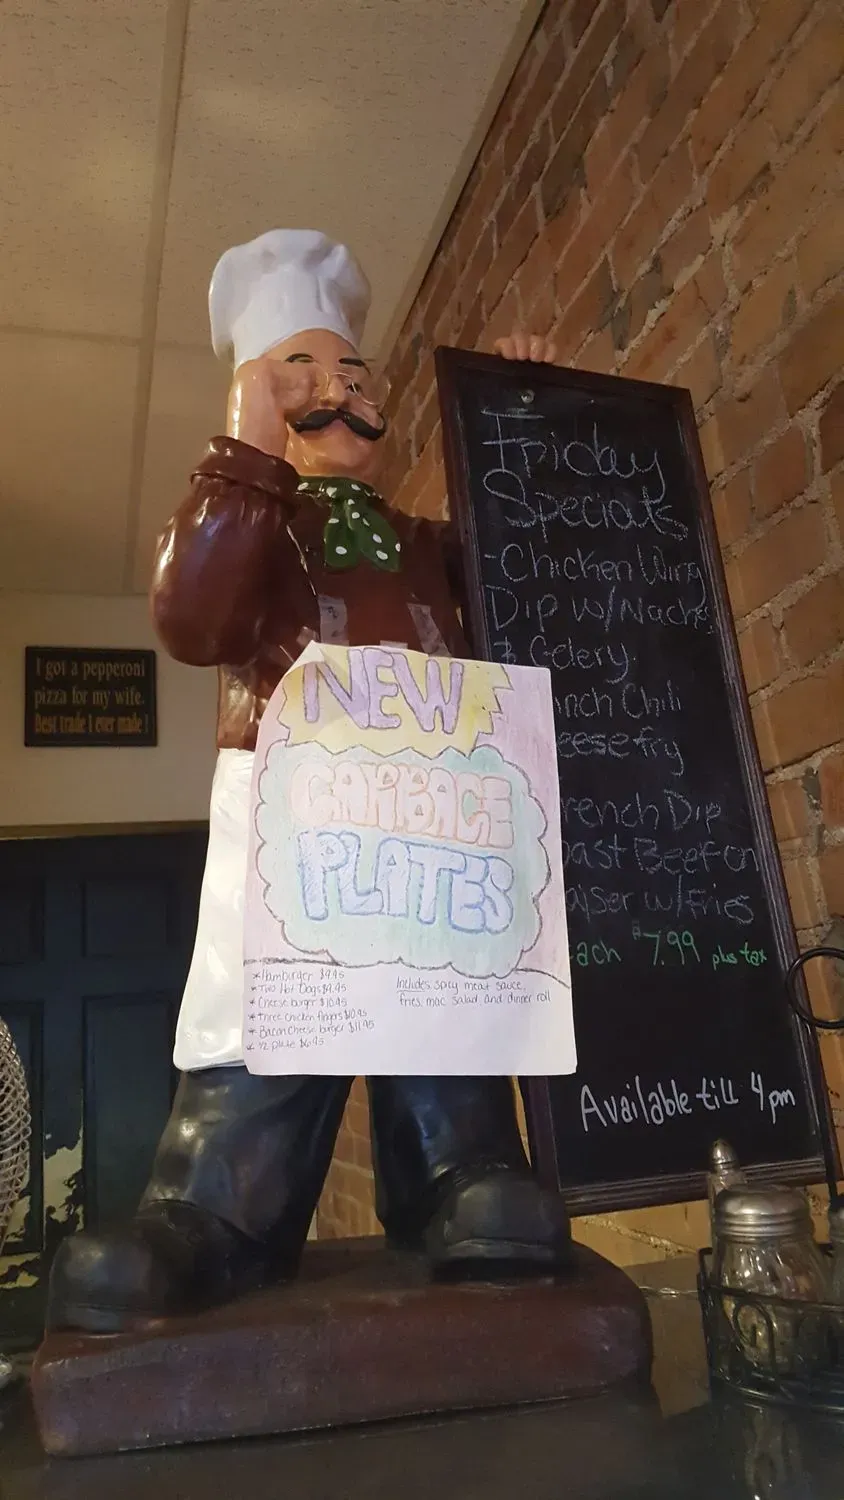 I got a pepperoni
pizza for my wife.
Best trade I ever made!
NEW
GARBAGE
PLATES
*Hamburger $9.95
*Two Hot Dogs $9.95
*Cheese burger $10.95
*three chicken fingers $10.95
*Bacon Cheese burger $11.95
*1/2 plate $6.95
Includes spicy meat sauce,
fries, mac salad and dinner roll
Friday
Specials
-Chicken Wing
Dip w/Nachos
& Celery
nch Chili
eesefry
rench Dip
oast Beef on
aiser w/Fries
ach $7.99 plus tax
Available till 4pm